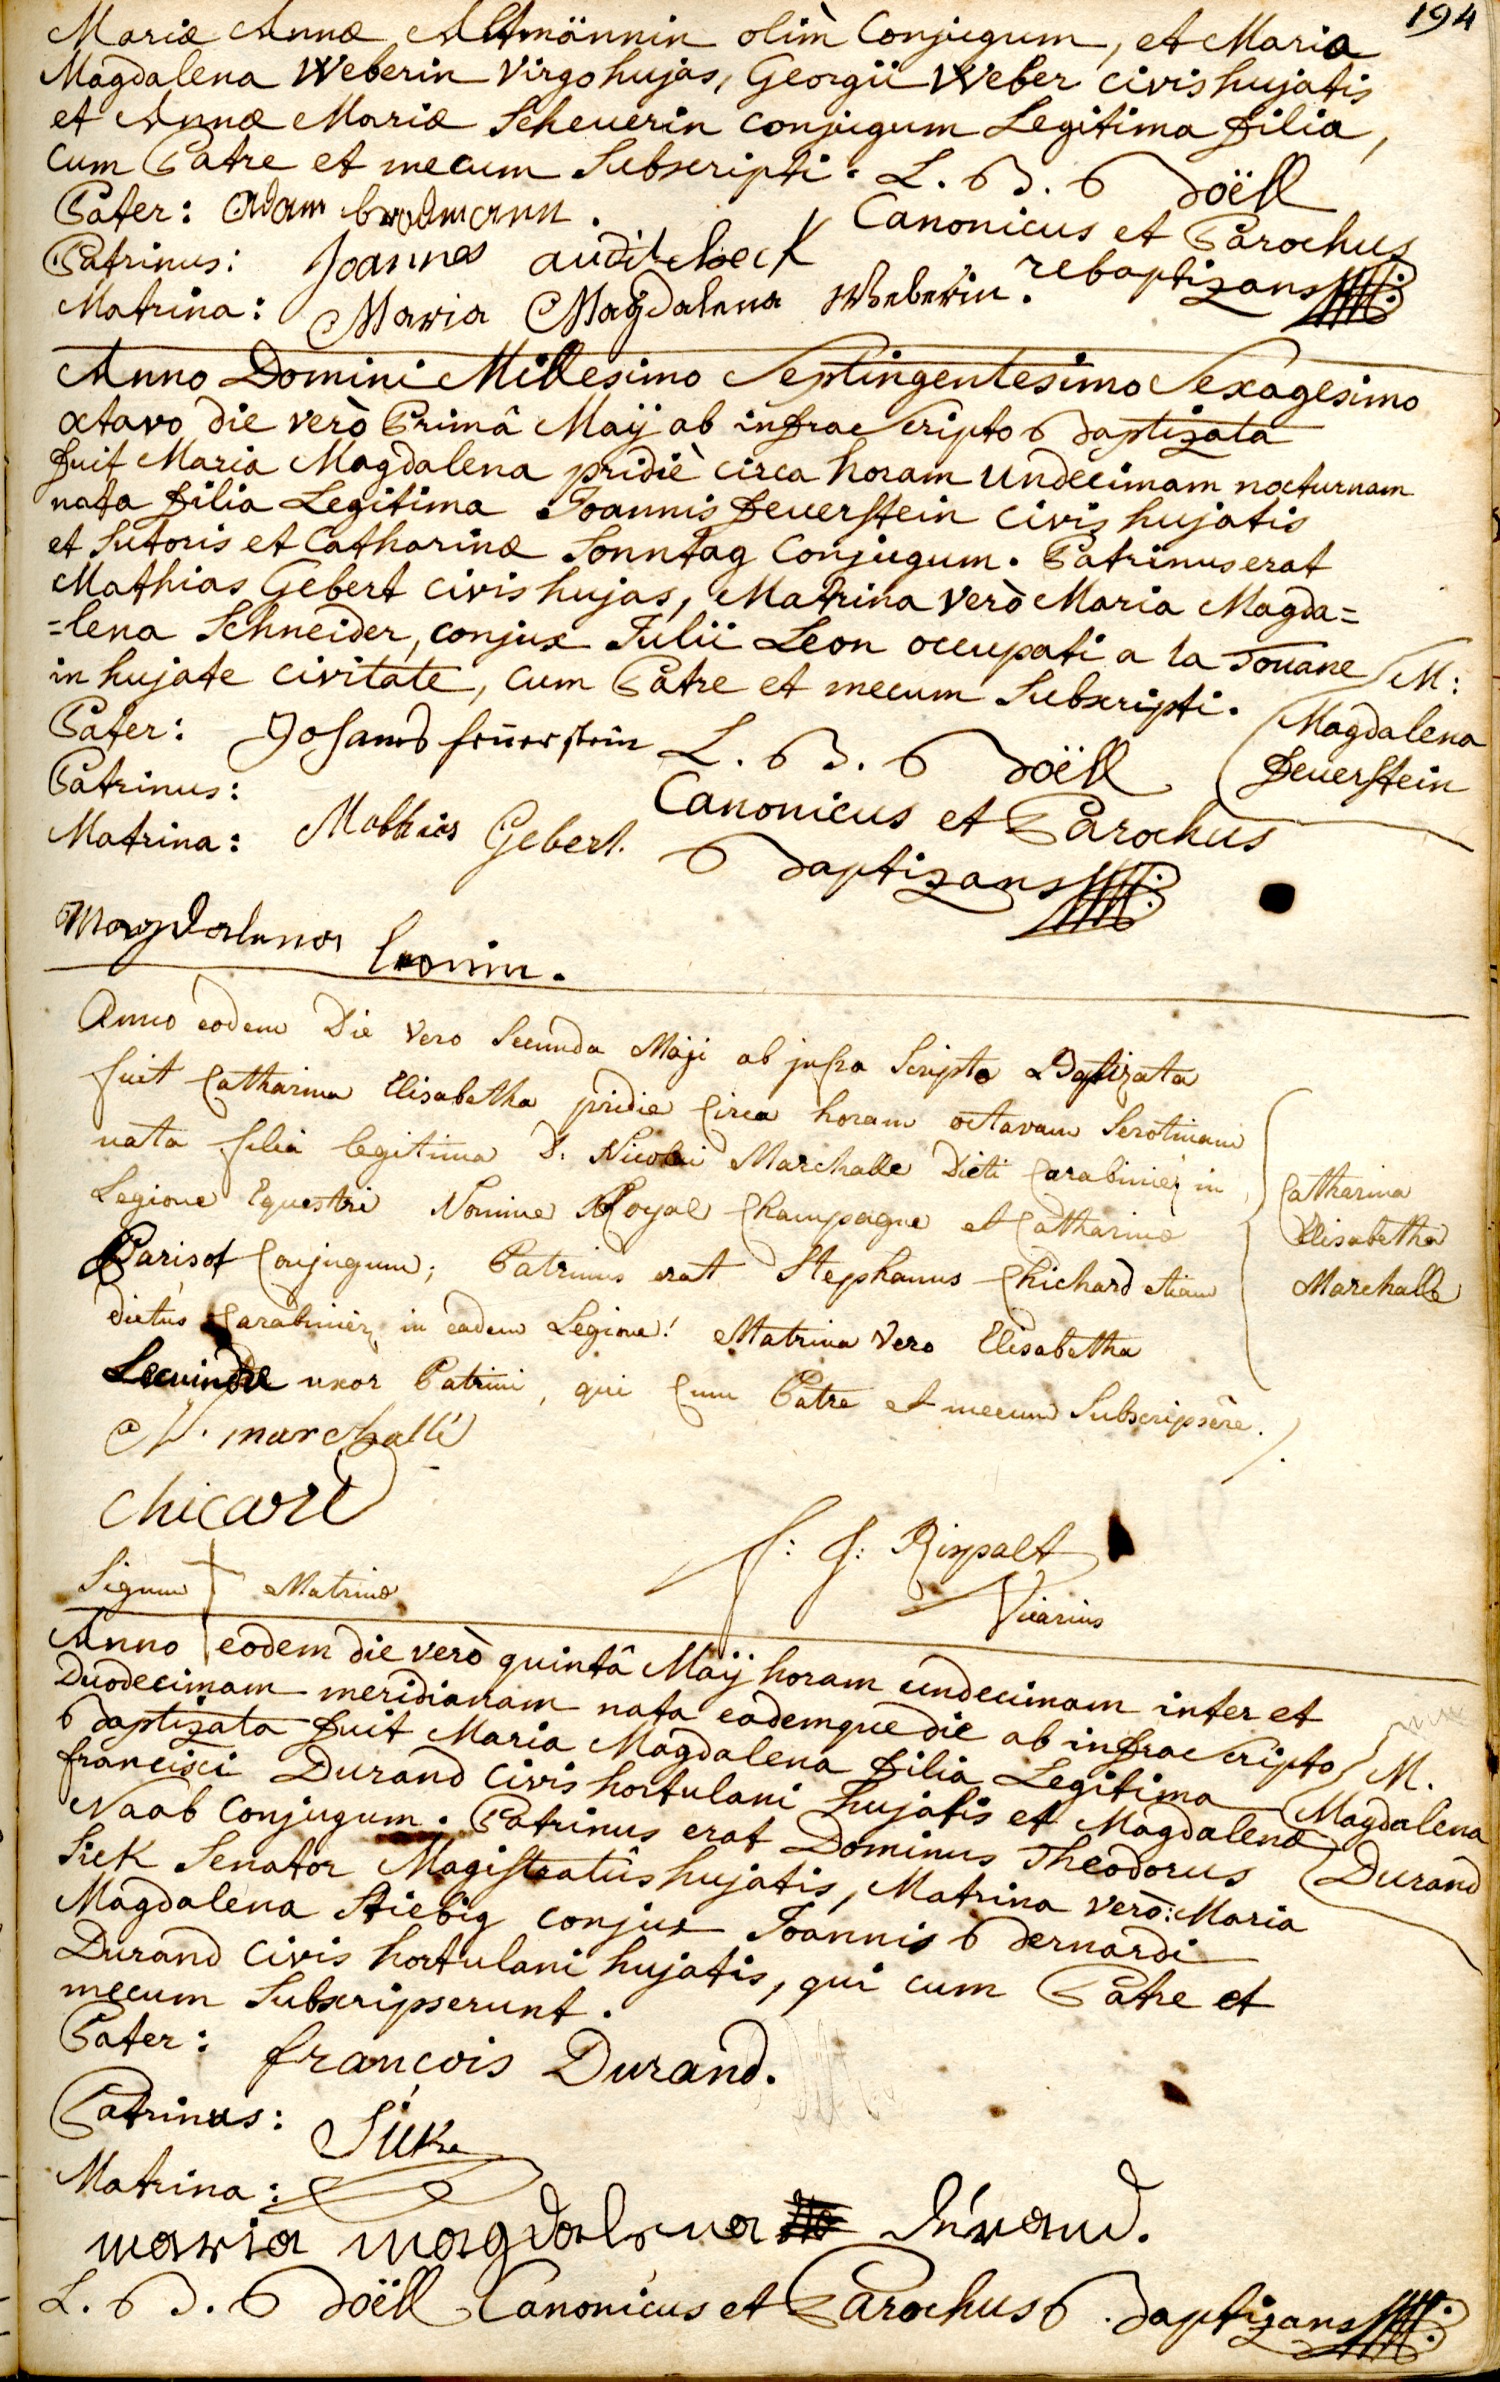 194
Mariæ Annæ Altmännin olim Conjugum, et Maria
Magdalena Weberin Virgo hujas, Georgii Weber civis hujatis
et Annæ Mariæ Scheuerin conjugum Legitima filia,
cum Patre et mecum Subscripti. L. B. Böell
Canonicus et Parochus
rebaptizans
Pater: adam brodmann.
Patrinus: Joannes
Matrina: Maria Magdalena Weberin.
Anno Domini Millesimo Septingentesimo Sexagesimo
octavo die verò Primâ Maij ab infrascripto Baptizata
fuit Maria Magdalena pridiè circa horam undecimam nocturnam
nata filia Legitima Joannis feuerstein civis hujatis
et Sutoris et Catharinæ Sonntag Conjugum. Patrinus erat
Mathias Gebert civis hujas, Matrina verò Maria Magda=
=lena Schneider, conjux Julii Leon occupati a la Douane
in hujate civitate, cum Patre et mecum Subscripti.
M:
Magdalena
feuerstein
Pater: Johannes feuerstein
L. B. Böell
Canonicus et Parochus
Baptizans
Patrinus:
Matrina: Mathias Gebert.
Magdalena leonin.
Anno eodem Die Vero Secunda Maji ab infra Scripto Baptizata
fuit Catharina Elisabetha pridie Circa horam octavam Serotinam
nata filia legitima D. Nicolai Marchalle Dicti Carabinier in
Legione Equestri Nomine Royal Champagne et Catharinæ
Parisot Conjugum; Patrinus erat Stephanus Chichard etiam
dictus Carabinier in eadem Legione! Matrina Vero Elisabetha
uxor Patrini, qui Cum Patre et mecum Subscripsêre.
Catharina
Elisabetha
Marchalle
N. marchallé
Chicard
Signum + Matrinæ
f: J: Rispalt
Vicarius
Anno eodem die verò quintâ Maij horam undecimam inter et
Duodecimam meridianam nata eademque die ab infrascripto
Baptizata fuit Maria Magdalena filia Legitima
francisci Durand civis hortulani hujatis et Magdalenæ
Naab Conjugum. Patrinus erat Dominus Theodorus
Sick Senator Magistratûs hujatis, Matrina verò: Maria
Magdalena Stiebig conjux Joannis Bernardi
Durand civis hortulani hujatis, qui cum Patre et
mecum Subscripserunt.
M.
Magdalena
Durand
Pater: françois Durand.
Patrinus: Sick
Matrina:
maria magdalena durand.
L. B. Böell Canonicus et Parochus Baptizans